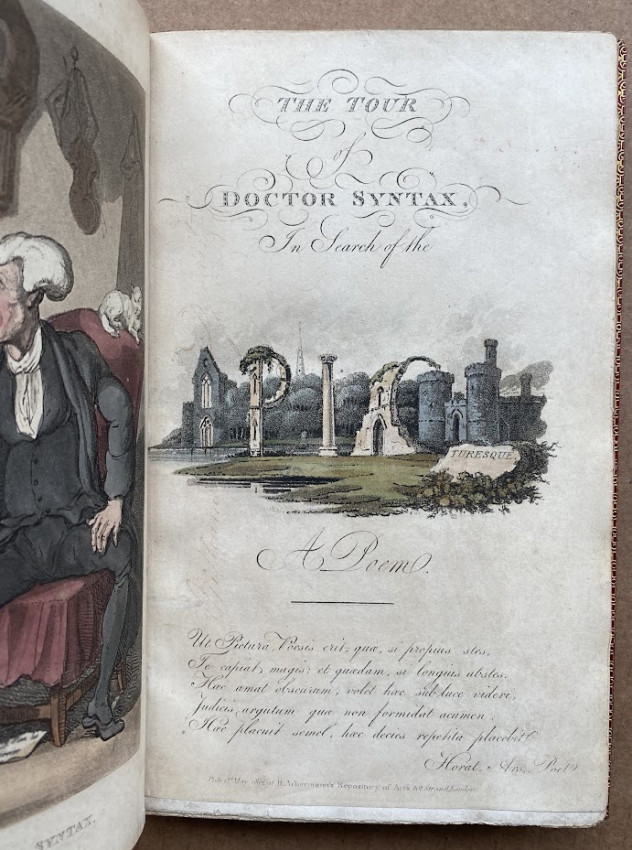 THE TOUR
of
DOCTOR SYNTAX,
In Search of the
PIC
TURESQUE
A Poem.
Ut Pictura, Poesis erit; quæ, si propius stes,
Te capiat magis: et quædam, si longius abstes.
Hæc amat obscurum; volet hæc sub luce videri,
Judicis argutum quæ non formidat acumen:
Hæc placuit semel, hæc decies repetita placebit.
Horat. Ars. Poet.
Pub. May at R. Ackermann's Repository of Arts Strand London
SYNTAX.